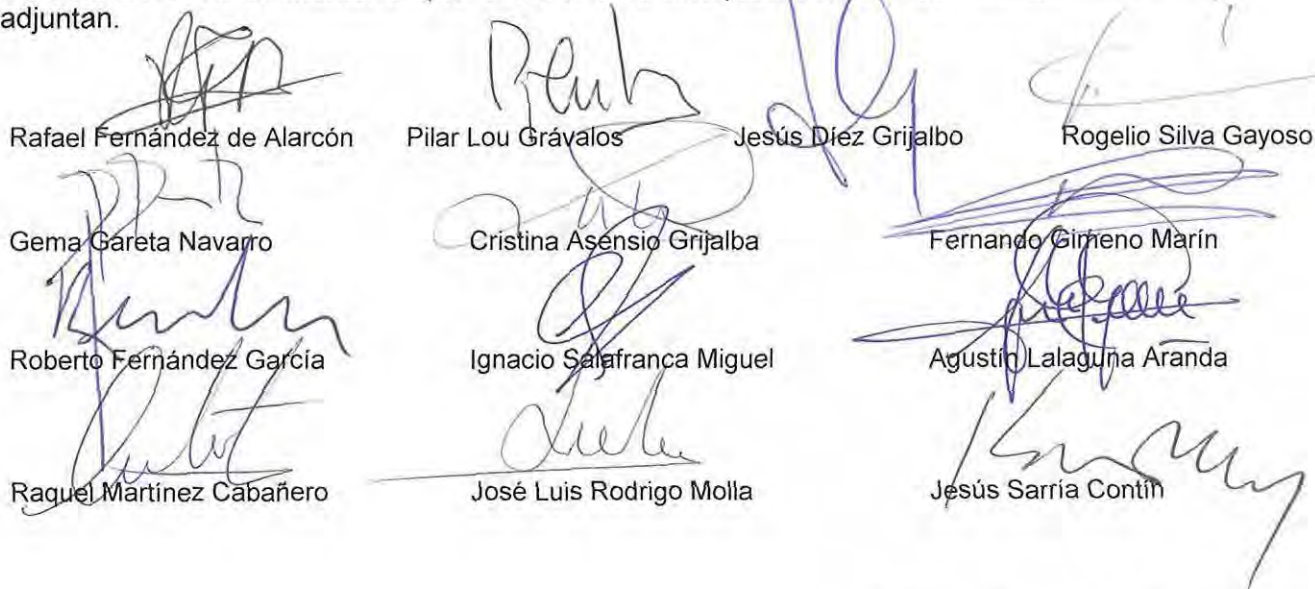 adjuntan.
Rafael Fernández de Alarcón Pilar Lou Grávalos Jesús Díez Grijalbo Rogelio Silva Gayoso
Gema Gareta Navarro Cristina Asensio Grijalba Fernando Gimeno Marín
Roberto Fernández García Ignacio Salafranca Miguel Agustín Lalaguna Aranda
Raquel Martínez Cabañero José Luis Rodrigo Molla Jesús Sarría Contín